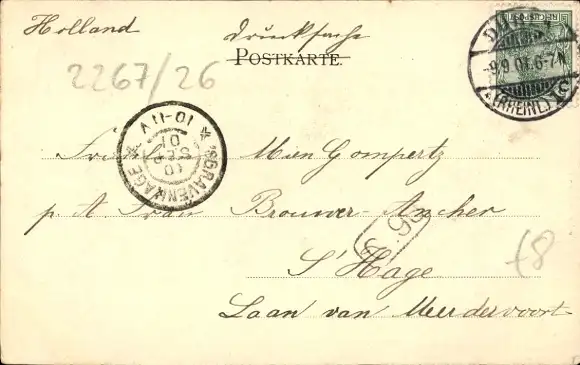 Holland Drucksache
POSTKARTE.
REICHSPOST
9.9.01.6-7N
(RHEINL)
c
2267/26
'S GRAVENHAGE
10 SEP 01
10-11V
Mien Gompertz
p. A. Frau Brouwer-Ancher
96.
S'Hage
f8
Laan van Meerdervoort